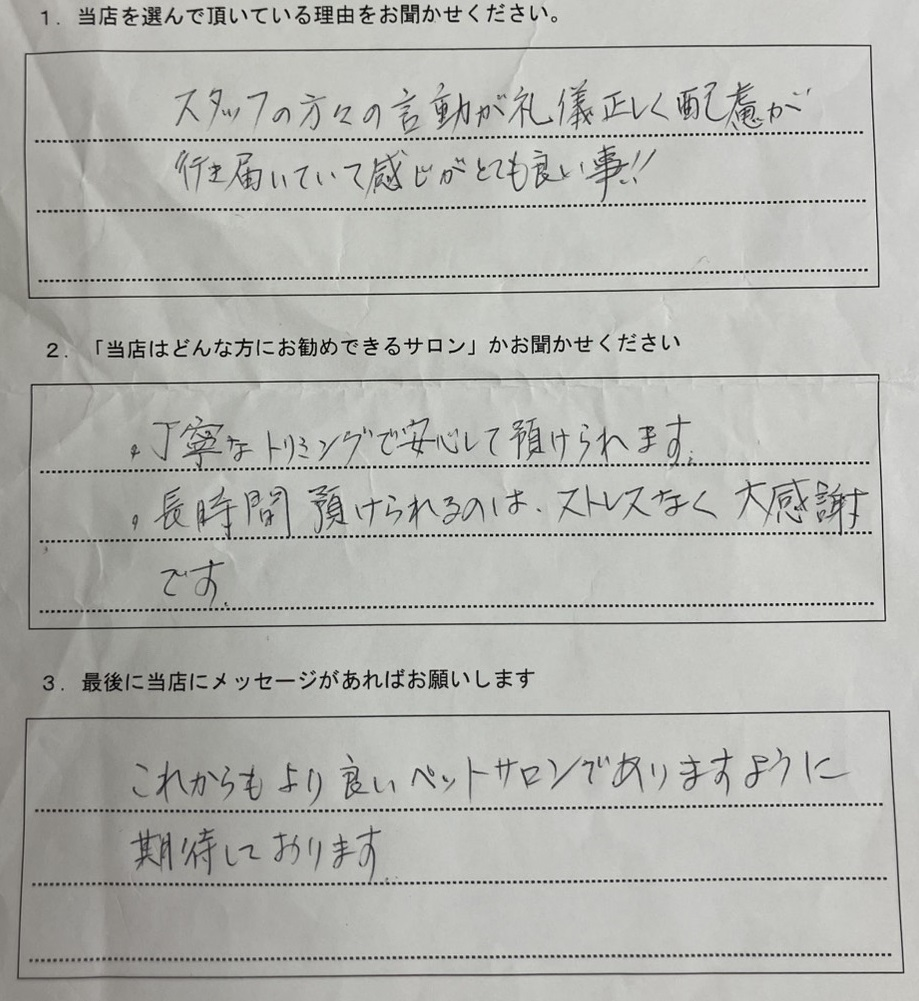 1．当店を選んで頂いている理由をお聞かせください。
スタッフの方々の言動が礼儀正しく配慮が
行き届いていて感じがとても良い事!!
2．「当店はどんな方にお勧めできるサロン」かお聞かせください
・丁寧なトリミングで安心して預けられます。
・長時間預けられるのは、ストレスなく大感謝
です。
3．最後に当店にメッセージがあればお願いします
これからもより良いペットサロンでありますように
期待しております。